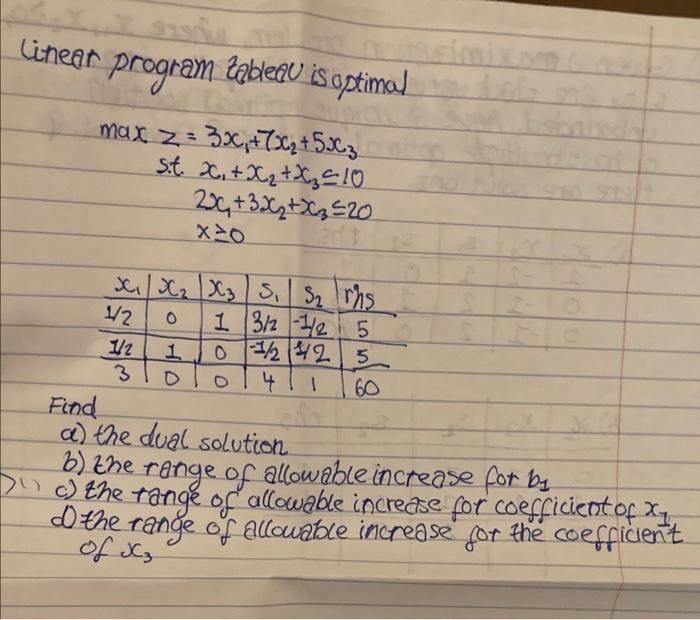 Linear program tableau is optimal
max z = 3x₁+7x₂+5x₃
s.t. x₁+x₂+x₃≤10
2x₁+3x₂+x₃≤20
x≥0
x₁ | x₂ | x₃ | S₁ | S₂ | rhs
1/2 | 0 | 1 | 3/2 | -1/2 | 5
1/2 | 1 | 0 | -1/2 | 1/2 | 5
3 | 0 | 0 | 4 | 1 | 60
Find
a) the dual solution
b) the range of allowable increase for b₁
c) the range of allowable increase for coefficient of x₁
d) the range of allowable increase for the coefficient
of x₃